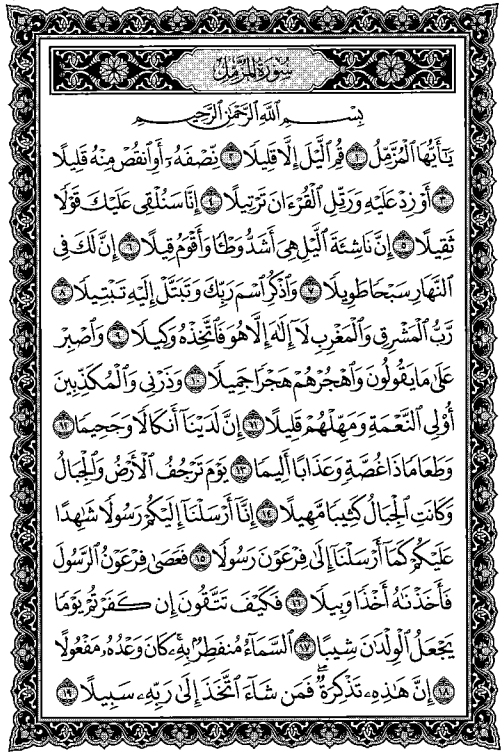 سُورَةُ الْمُزَّمِّلِ
بِسْمِ اللَّهِ الرَّحْمَٰنِ الرَّحِيمِ
يَٰٓأَيُّهَا الْمُزَّمِّلُ ١ قُمِ الَّيْلَ إِلَّا قَلِيلًا ٢ نِّصْفَهُۥٓ أَوِ انقُصْ مِنْهُ قَلِيلًا
٣ أَوْ زِدْ عَلَيْهِ وَرَتِّلِ الْقُرْءَانَ تَرْتِيلًا ٤ إِنَّا سَنُلْقِى عَلَيْكَ قَوْلًا
ثَقِيلًا ٥ إِنَّ نَاشِئَةَ الَّيْلِ هِىَ أَشَدُّ وَطْـًٔا وَأَقْوَمُ قِيلًا ٦ إِنَّ لَكَ فِى
النَّهَارِ سَبْحًا طَوِيلًا ٧ وَاذْكُرِ اسْمَ رَبِّكَ وَتَبَتَّلْ إِلَيْهِ تَبْتِيلًا ٨
رَّبُّ الْمَشْرِقِ وَالْمَغْرِبِ لَآ إِلَٰهَ إِلَّا هُوَ فَاتَّخِذْهُ وَكِيلًا ٩ وَاصْبِرْ
عَلَىٰ مَا يَقُولُونَ وَاهْجُرْهُمْ هَجْرًا جَمِيلًا ١٠ وَذَرْنِى وَالْمُكَذِّبِينَ
أُو۟لِى النَّعْمَةِ وَمَهِّلْهُمْ قَلِيلًا ١١ إِنَّ لَدَيْنَآ أَنكَالًا وَجَحِيمًا ١٢
وَطَعَامًا ذَا غُصَّةٍ وَعَذَابًا أَلِيمًا ١٣ يَوْمَ تَرْجُفُ الْأَرْضُ وَالْجِبَالُ
وَكَانَتِ الْجِبَالُ كَثِيبًا مَّهِيلًا ١٤ إِنَّآ أَرْسَلْنَآ إِلَيْكُمْ رَسُولًا شَٰهِدًا
عَلَيْكُمْ كَمَآ أَرْسَلْنَآ إِلَىٰ فِرْعَوْنَ رَسُولًا ١٥ فَعَصَىٰ فِرْعَوْنُ الرَّسُولَ
فَأَخَذْنَٰهُ أَخْذًا وَبِيلًا ١٦ فَكَيْفَ تَتَّقُونَ إِن كَفَرْتُمْ يَوْمًا
يَجْعَلُ الْوِلْدَٰنَ شِيبًا ١٧ السَّمَآءُ مُنفَطِرٌۢ بِهِۦ ۚ كَانَ وَعْدُهُۥ مَفْعُولًا
١٨ إِنَّ هَٰذِهِۦ تَذْكِرَةٌ ۖ فَمَن شَآءَ اتَّخَذَ إِلَىٰ رَبِّهِۦ سَبِيلًا ١٩